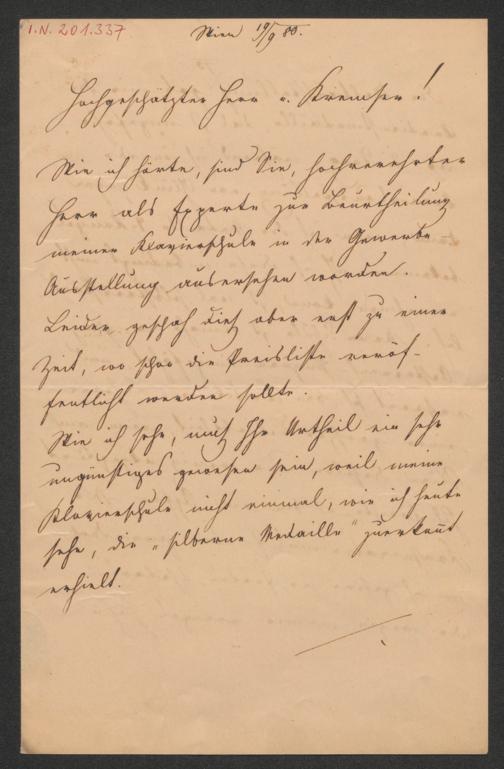 I.N. 201.337
Wien 19/9 80.
Hochgeschätzter Herr v. Kremser!
Wie ich hörte, sind Sie, hochverehrter
Herr als Experte zur Beurtheilung
meiner Klavierschule in der Gewerbe-
Ausstellung ausersehen worden.
Leider geschah dieß aber erst zu einer
Zeit, wo schon die Preisliste veröf-
fentlicht werden sollte.
Wie ich sehe, muß Ihr Urtheil ein sehr
ungünstiges gewesen sein, weil meine
Klavierschule nicht einmal, wie ich heute
sehe, die „silberne Medaille" zuerkannt
erhielt.